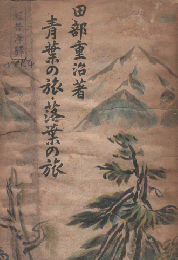 田部重治著
青葉の旅落葉の旅